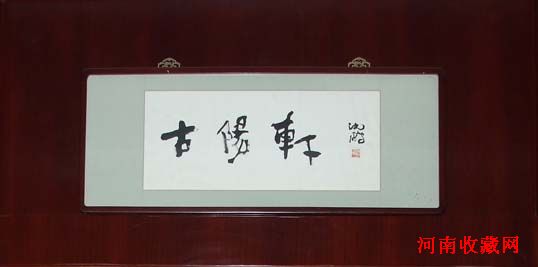 古陽軒
沈鹏
河南收藏网